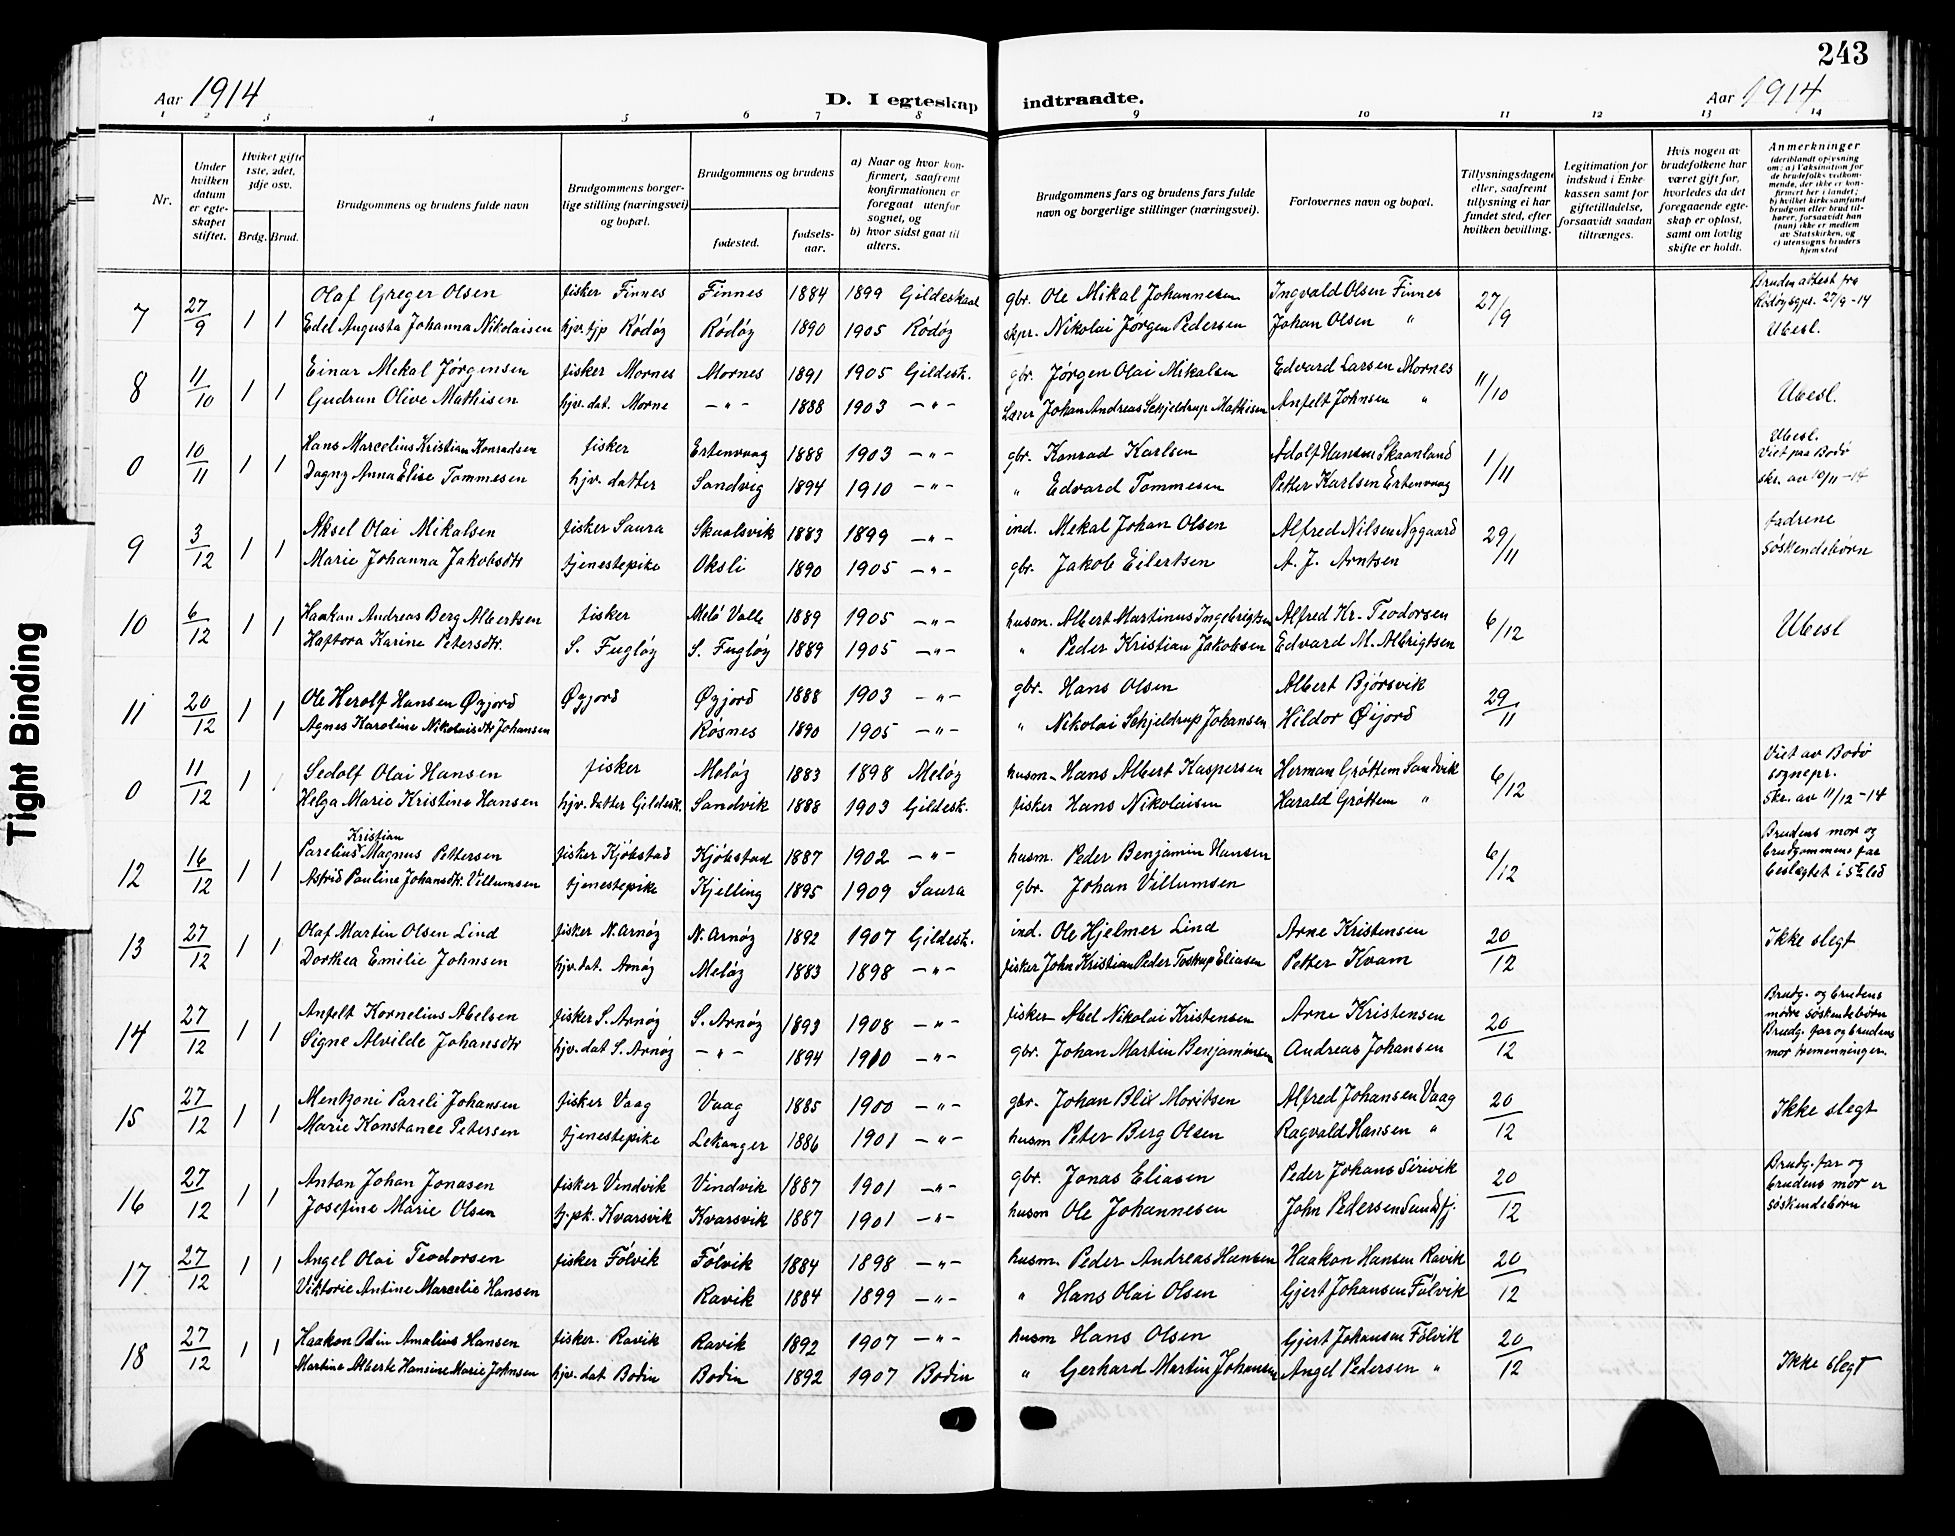 243
Aar 1914
D. I egteskap indtraadte.
Aar 1914
1 2 3 4 5 6 7 8 9 10 11 12 13 14
Nr.
Under hvilken datum er egteskapet stiftet.
Hvilket gifte 1ste, 2det, 3dje osv.
Brdg. Brud.
Brudgommens og brudens fulde navn
Brudgommens borgerlige stilling (næringsvei) og bopæl.
Brudgommens og brudens
fødested.
fødselsaar.
a) Naar og hvor konfirmert, saafremt konfirmationen er foregaat utenfor sognet, og
b) hvor sidst gaat til alters.
Brudgommens fars og brudens fars fulde navn og borgerlige stillinger (næringsvei).
Forlovernes navn og bopæl.
Tillysningsdagene eller, saafremt tillysning ei har fundet sted, efter hvilken bevilling.
Legitimation for indskud i Enkekassen samt for giftetilladelse, forsaavidt saadan tiltrænges.
Hvis nogen av brudefolkene har været gift før, hvorledes da det foregaaende egteskap er opløst, samt om lovlig skifte er holdt.
Anmerkninger (deriblandt oplysning om: a) Vaksination for de brudefolks vedkommende, der ikke er konfirmert her i landet; b) hvilket kirkesamfund brudgom eller brud tilhører, forsaavidt han (hun) ikke er medlem av Statskirken, og c) utensogns bruders hjemsted
7 27/9 1 1 Olaf Greger Olsen fisker Finnes Finnes 1884 1899 Gildeskaal gbr. Ole Mikal Johannesen Ingvald Olsen Finnes 27/9 Bruden attest fra Rödöy sgpr. 27/9-14
Edel Augusta Johanna Nikolaisen hjv. tjp Rödöy Rödöy 1890 1905 Rödöy skpr. Nikolai Jørgen Pedersen Johan Olsen " Ubesl.
8 11/10 1 1 Einar Mekal Jørgensen fisker Mornes Mornes 1891 1905 Gildesk. gbr. Jörgen Olai Mikalsen Edvard Larsen Mornes 11/10 Ubesl.
Gudrun Olive Mathisen hjv. dat. Morne – " – 1888 1903 – " – Lærer Johan Andreas Schjeldrup Mathisen Anfelt Johnsen "
0 10/11 1 1 Hans Marcelius Kristian Konradsen fisker Ertenvaag 1888 1903 – " – gbr. Konrad Karlsen Adolf Hansen Skaanland 1/11 Ubesl. Viet paa Bodø
Dagny Anna Elise Tommesen hjv. datter Sandvig 1894 1910 – " – " Edvard Tommesen Petter Karlsen Ertenvaag skr. av 10/11-14
9 3/12 1 1 Aksel Olai Mikalsen fisker Saura Skaalsvik 1883 1899 – " – ind. Mekal Johan Olsen Alfred Nilsen Nygaard 29/11 fædrene søskendebørn
Marie Johanna Jakobsdtr tjenestepike Oksli 1890 1905 – " – gbr. Jakob Eilertsen A. J. Arntsen
10 6/12 1 1 Haakon Andreas Berg Albertsen fisker Melö Valle 1889 1905 – " – husm. Albert Martinus Ingebrigtsen Alfred Kr. Teodorsen 6/12 Ubesl
Haftora Karine Petersdtr. S. Fuglöy S. Fuglöy 1889 1905 – " – " Peder Kristian Jakobsen Edvard M. Albrigtsen
11 20/12 1 1 Ole Herolf Hansen Øyjord Øyjord Øyjord 1888 1903 – " – gbr. Hans Olsen Albert Bjørsvik 29/11
Agnes Karoline Nikolaisdtr Johansen Rosnes 1890 1905 – " – " Nikolai Schjeldrup Johansen Hildor Øijord
0 11/12 1 Sedolf Olai Hansen fisker Melöy 1883 1898 Melöy husm. Hans Albert Kaspersen Herman Gróttem Sandvik 6/12 Viet av Bodø sognepr.
Helga Marie Kristine Hansen hjv. datter Gildesk. Sandvik 1888 1903 Gildesk. fisker Hans Nikolaisen Harald Gröttem " skr. av 11/12-14
12 16/12 1 1 Parelius Kristian Magnus Pettersen fisker Kjökstad Kjökstad 1887 1902 – " – husm. Peder Benjamin Hansen 6/12 Brudens mor og brudgommens far
Astrid Pauline Johansdtr. Villumsen tjenestepike Kjelling 1895 1909 Saura gbr. Johan Villumsen beslægtet i 5te led
13 27/12 1 1 Olaf Martin Olsen Lind fisker N. Arnöy N. Arnöy 1892 1907 Gildesk. ind. Ole Hjelmer Lind Arne Kristensen 20/12 Ikke slegt
Dorthea Emilie Johnsen hjv. dat. Arnöy Melöy 1883 1898 – " – fisker John Kristian Peder Tostrup Eliasen Petter Kvam
14 27/12 1 1 Anfelt Kornelius Abelsen fisker S. Arnöy S. Arnöy 1893 1908 – " – fisker Abel Nikolai Kristensen Arne Kristensen 20/12 Brudg. og brudens mødre søskendebørn
Signe Alvilde Johansdtr hjv. dat S. Arnöy – " – 1894 1910 – " – gbr. Johan Martin Benjaminsen Andreas Johansen Brudg. far og brudens mor tremenninger.
15 27/12 1 1 Mentzoni Pareli Johansen fisker Vaag Vaag 1885 1900 – " – gbr. Johan Blix Moritsen Alfred Johansen Vaag 20/12 Ikke slegt
Marie Konstance Petersen tjenestepike Lekanger 1886 1901 – " – husm Peter Berg Olsen Ragvald Hansen "
16 27/12 1 1 Anton Johan Jonasen fisker Vindvik Vindvik 1887 1901 – " – gbr. Jonas Eliasen Peder Johans Sörivik 20/12 Brudg. far og brudens mor er
Josefine Marie Olsen tj. pk. Kvarsvik Kvarsvik 1887 1901 – " – husm Ole Johannesen John Pedersen Sundfj. søskendebörn
17 27/12 1 1 Angel Olai Teodorsen fisker Fölvik Fölvik 1884 1898 – " – husm. Peder Andreas Hansen Haakon Hansen Ravik 20/12
Viktorie Antine Marcelie Hansen Ravik 1884 1899 – " – " Hans Olai Olsen Gjert Johansen Fölvik
18 27/12 1 1 Haakon Odin Amalius Hansen fisker. Ravik Ravik 1892 1907 – " – husm Hans Olsen Gjert Johansen Fölvik 20/12 Ikke slegt
Martine Alberte Hansine Marie Johnsen hjv. dat Bodin Bodin 1892 1907 Bodin " Gerhard Martin Johansen Angel Pedersen "
Tight Binding